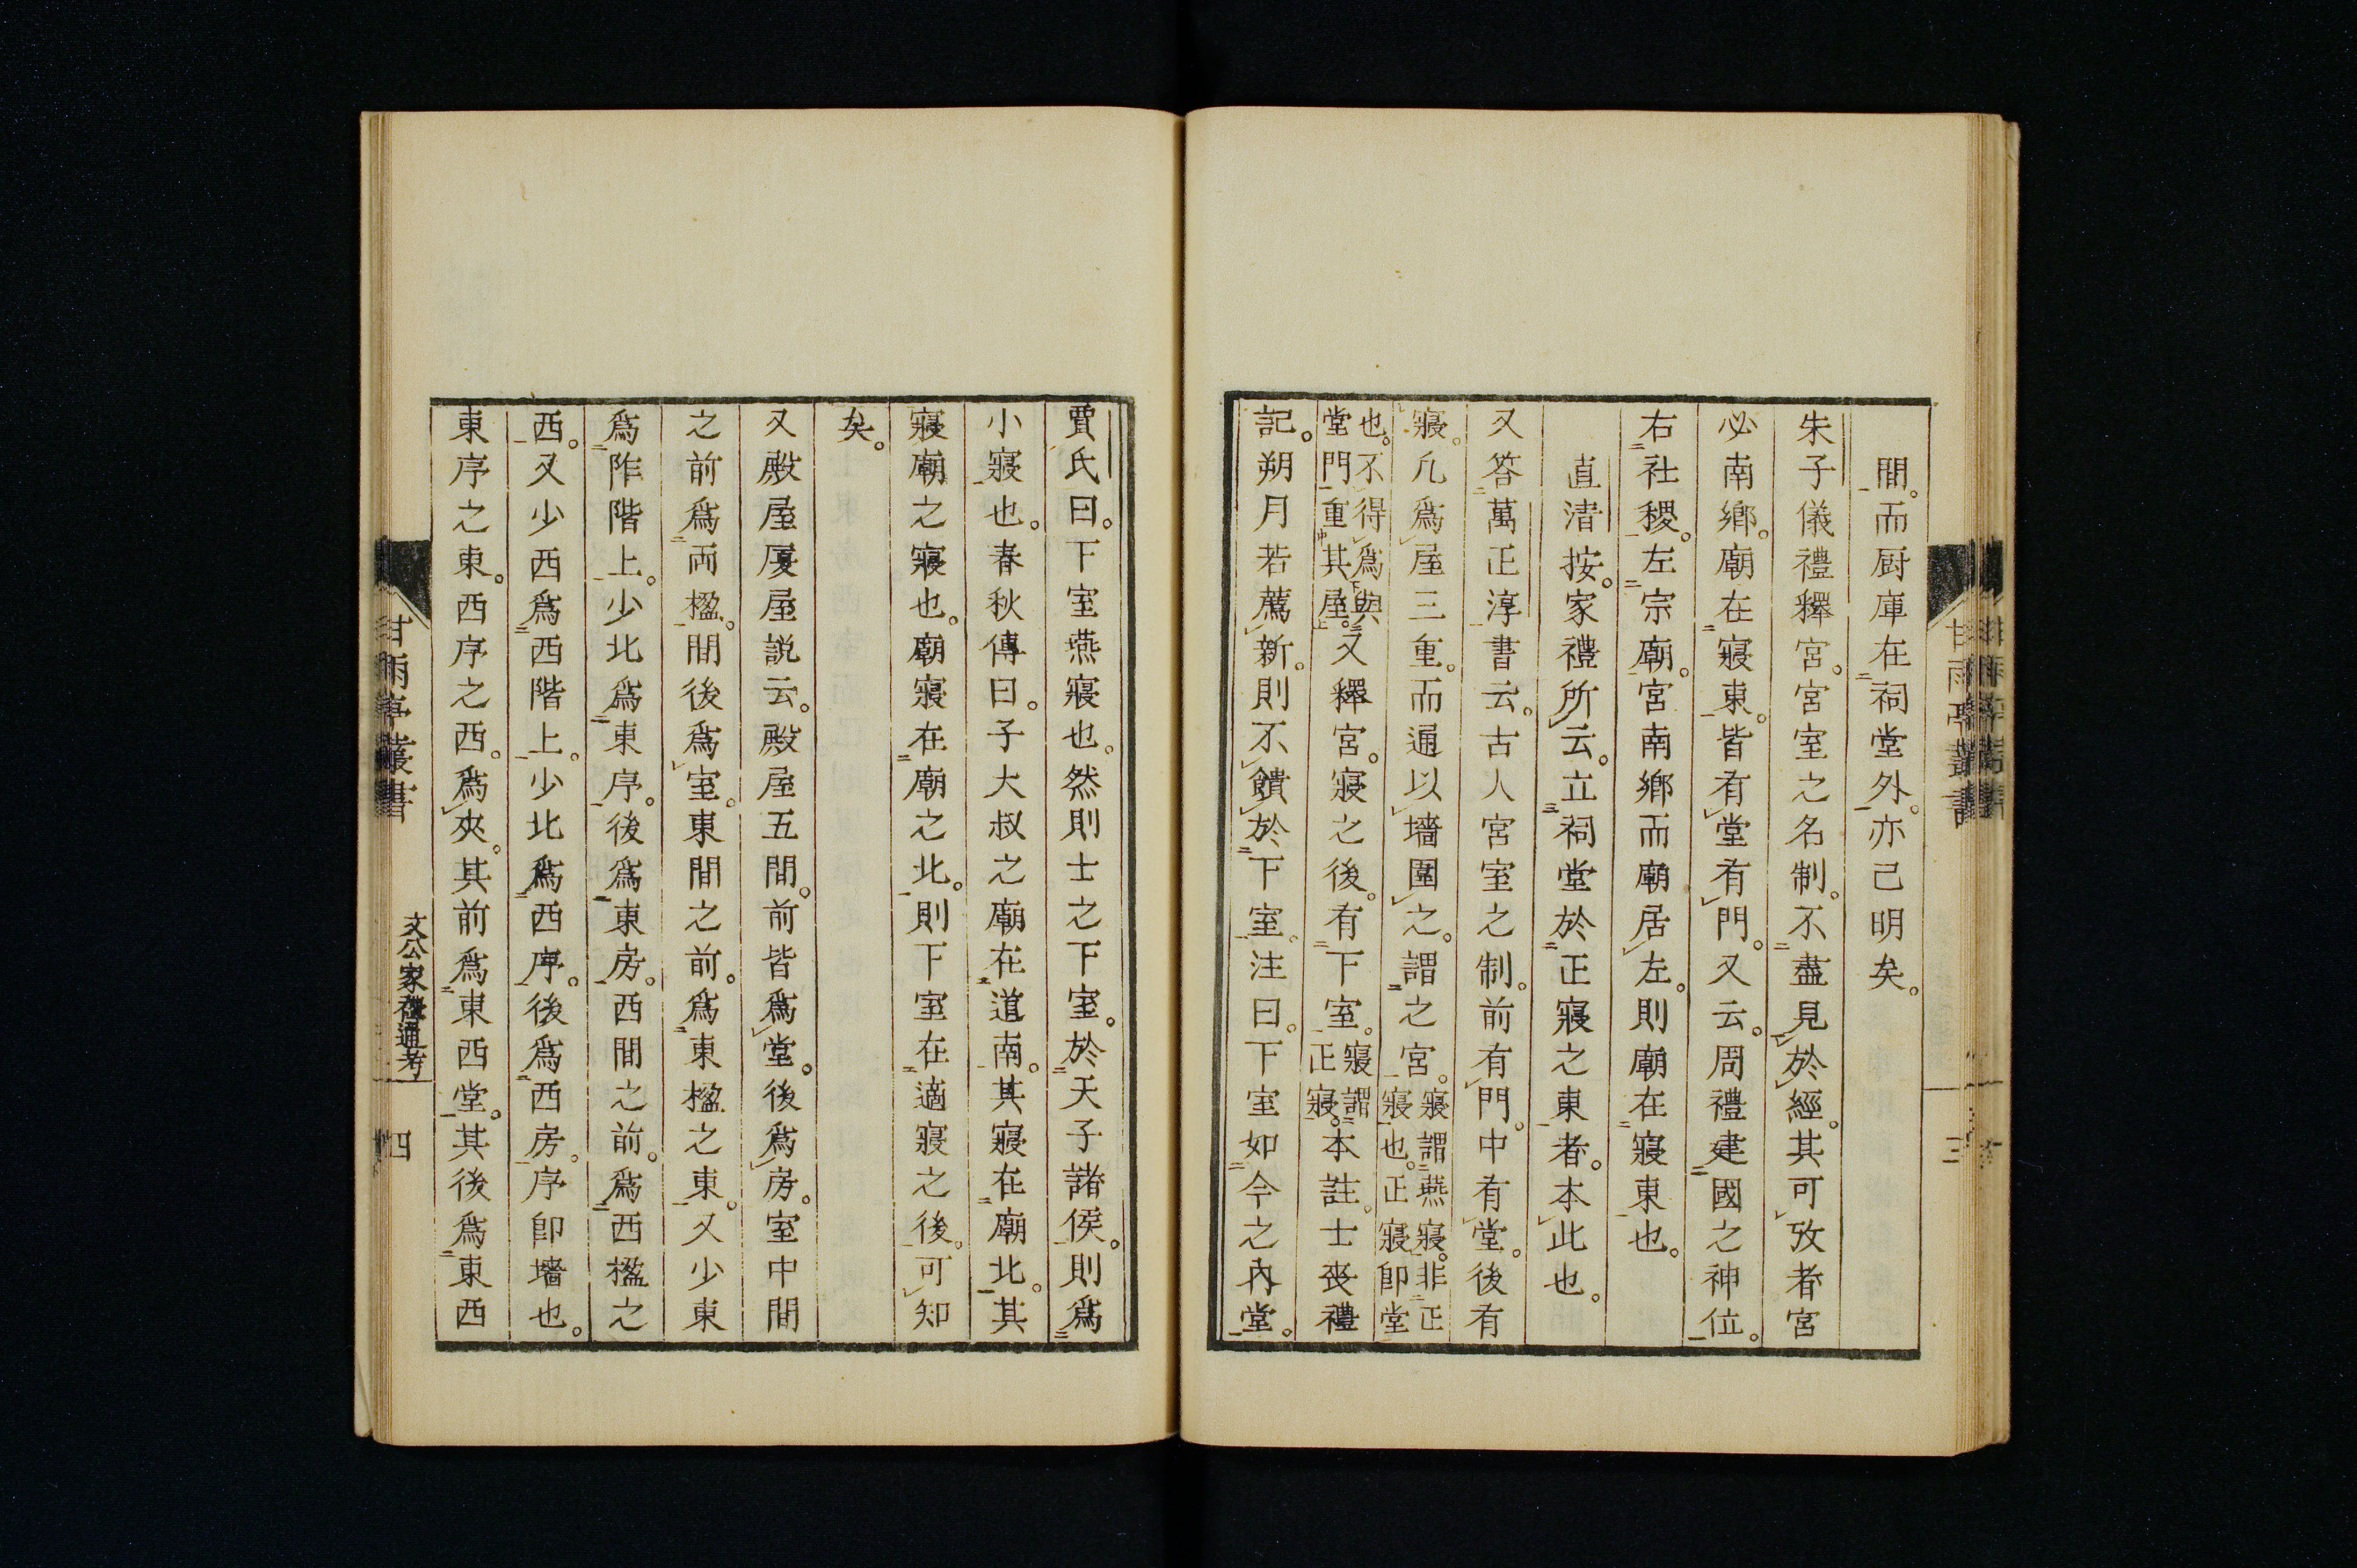 間。而厨庫在祠堂外。亦已明矣。
朱子儀禮釋宮。宮室之名制。不盡見於經。其可攷者宮
必南鄉。廟在寢東。皆有堂有門。又云。周禮建國之神位。
右社稷。左宗廟。宮南鄉而廟居左。則廟在寢東也。
直清按。家禮所云。立祠堂於正寢之東者。本此也。
又答萬正淳書云。古人宮室之制。前有門。中有堂。後有
寢。凡爲屋三重。而通以墻圍之。謂之宮。寢謂燕寢。非正寢也。正寢卽堂
也。不得爲與堂門重其屋。又釋宮。寢之後。有下室。寢謂正寢。本註。士喪禮
記。朔月若薦新。則不饋於下室。注曰。下室如今之內堂。
賈氏曰。下室燕寢也。然則士之下室。於天子諸侯。則爲
小寢也。春秋傳曰。子大叔之廟在道南。其寢在廟北。其
寢廟之寢也。廟寢在廟之北。則下室在適寢之後。可知
矣。
又殿屋厦屋説云。殿屋五間。前皆爲堂。後爲房。室中間
之前爲両楹。間後爲室。東間之前。爲東楹之東。又少東
爲阼階上。少北爲東序。後爲東房。西間之前。爲西楹之
西。又少西爲西階上。少北爲西序。後爲西房。序卽墻也。
東序之東。西序之西。爲夾。其前爲東西堂。其後爲東西
甘雨亭叢書
文公家禮通考
四
甘雨亭叢書
三